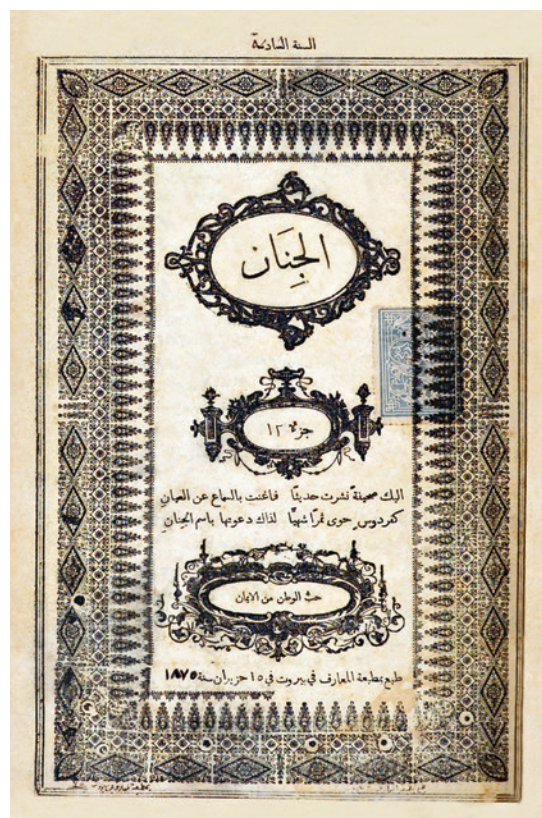 السنة السادسة
الجِنَان
جزء ١٢
اليك صحيفةً نشرت حديثًا فاغنت بالسماع عن العيانِ
كفردوسٍ حوى ثمرًا شهيًّا لذاك دعوتها باسم الجنانِ
حب الوطن من الايمان
طبع بمطبعة المعارف في بيروت في ١٥ حزيران سنة ١٨٧٥